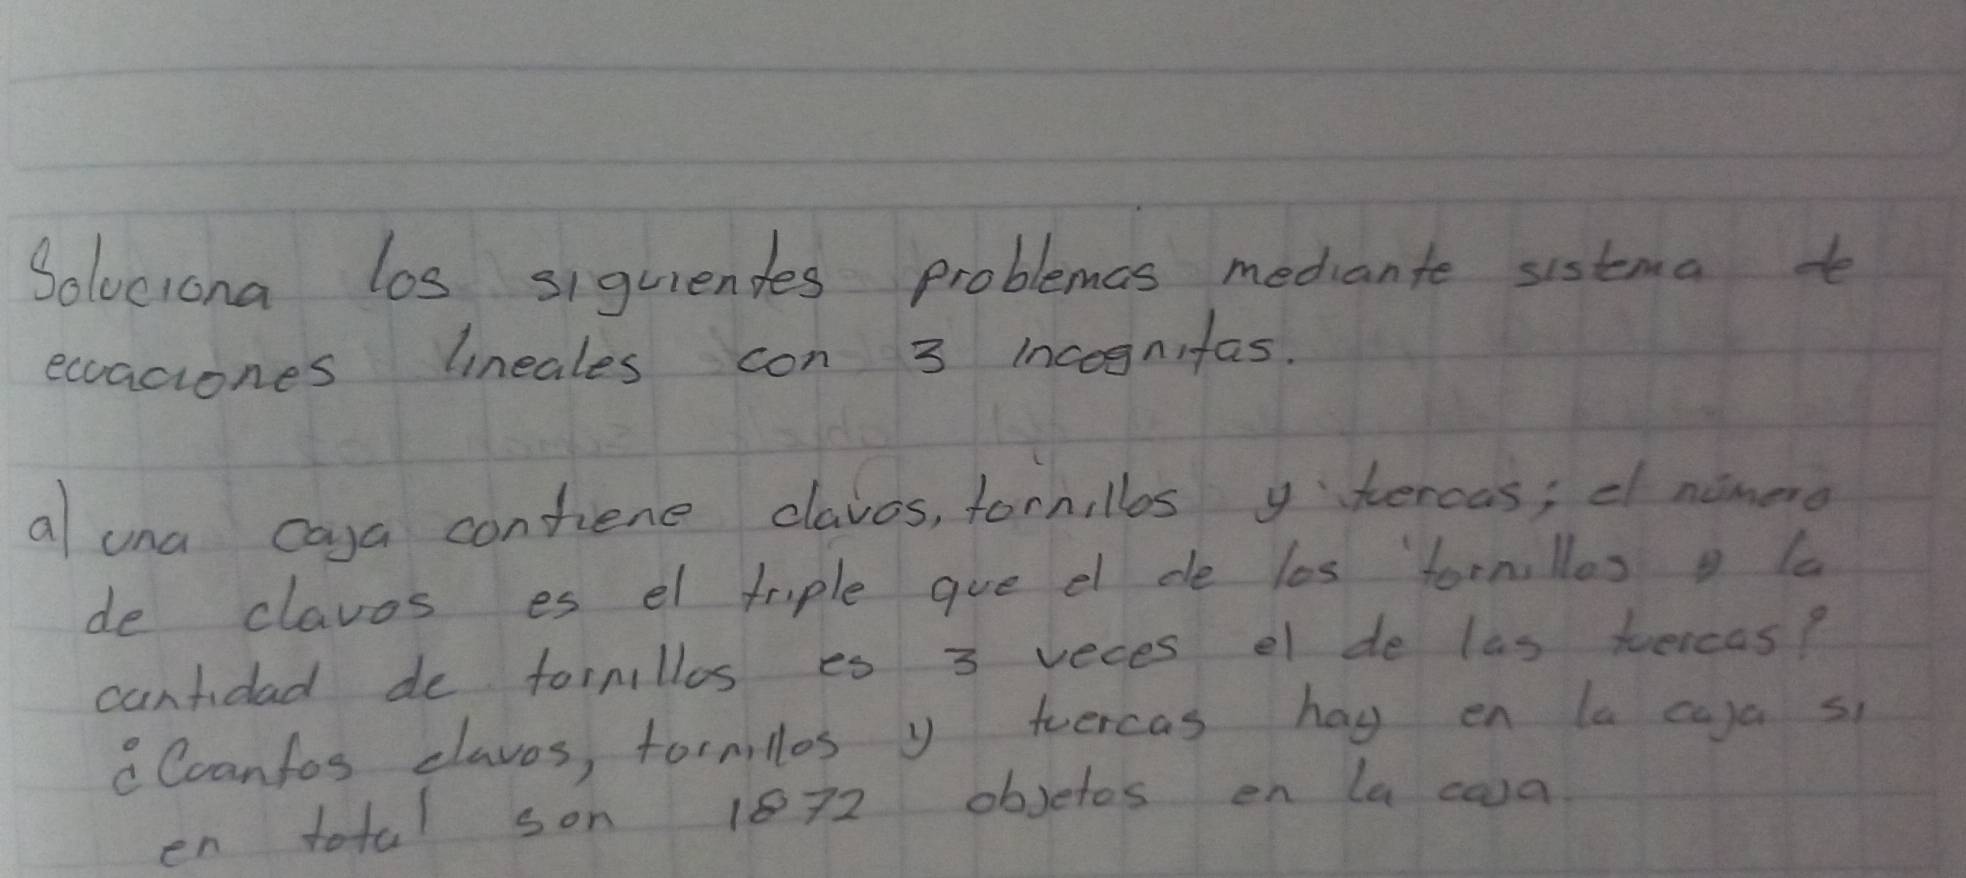 Soluciona los siguientes problemas mediante sistema de
ecuaciones lineales con 3 incognitas.
a) una caja contiene clavos, tornillos y tuercas; el número
de clavos es el triple que el de los tornillos y la
cantidad de tornillos es 3 veces el de las tuercas?
¿Cuantos clavos, tornillos y tuercas hay en la caja si
en total son 1872 objetos en la caja.